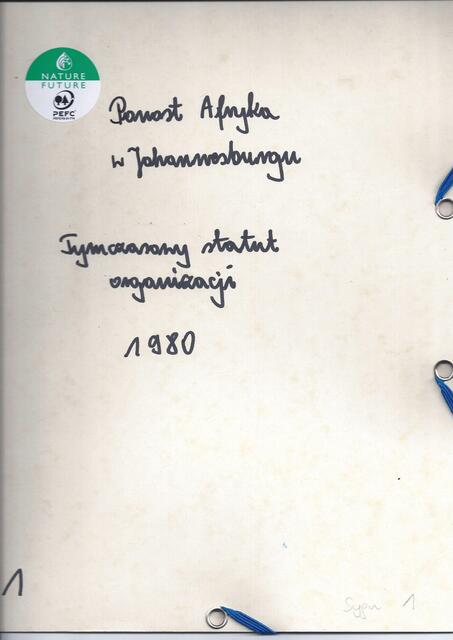 NATURE
FUTURE
PEFC
Ponost Afryka
w Johannesburgu
Tymczasowy statut
organizacji
1980
1
Sygn 1